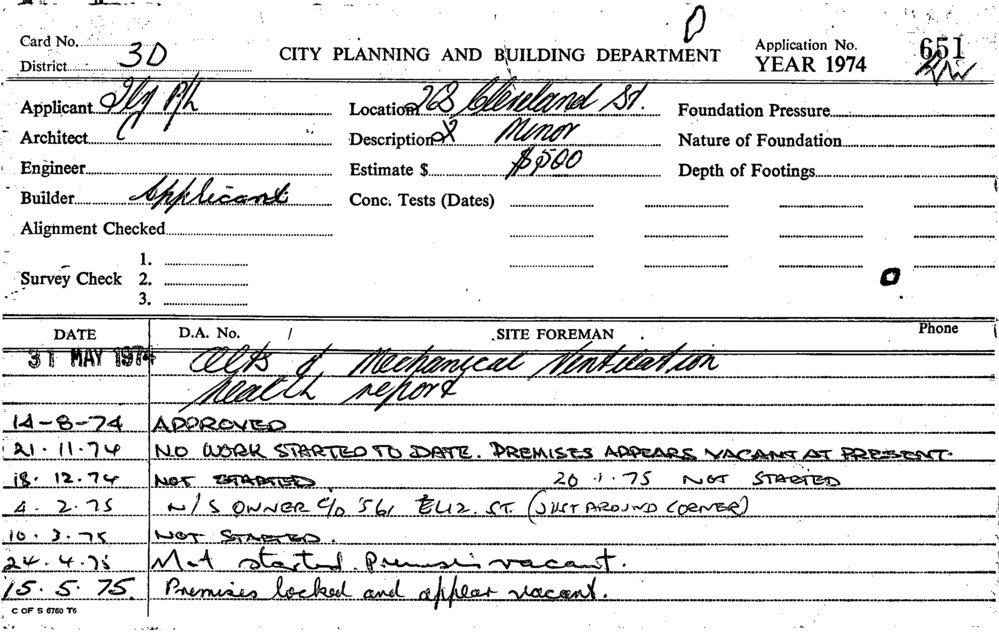 Card No.
District 3D
CITY PLANNING AND BUILDING DEPARTMENT
Application No. 651
YEAR 1974
Applicant P/L
Location Cleveland St.
Foundation Pressure
Architect
Description Minor
Nature of Foundation
Engineer
Estimate $ $500
Depth of Footings
Builder Applicant
Conc. Tests (Dates)
Alignment Checked
Survey Check
1.
2.
3.
DATE D.A. No. / SITE FOREMAN Phone
31 MAY 1974 Alts & Mechanical Ventilation
health report
14-8-74 APPROVED
21.11.74 NO WORK STARTED TO DATE. PREMISES APPEARS VACANT AT PRESENT.
18.12.74 NOT STARTED. 20.1.75 NOT STARTED
4.2.75 N/S OWNER C/O 561 ELIZ. ST. (JUST AROUND CORNER)
10.3.75 NOT STARTED.
24.4.75 Not started. Premises vacant.
15.5.75. Premises locked and appear vacant.
C OF S 6760 T6